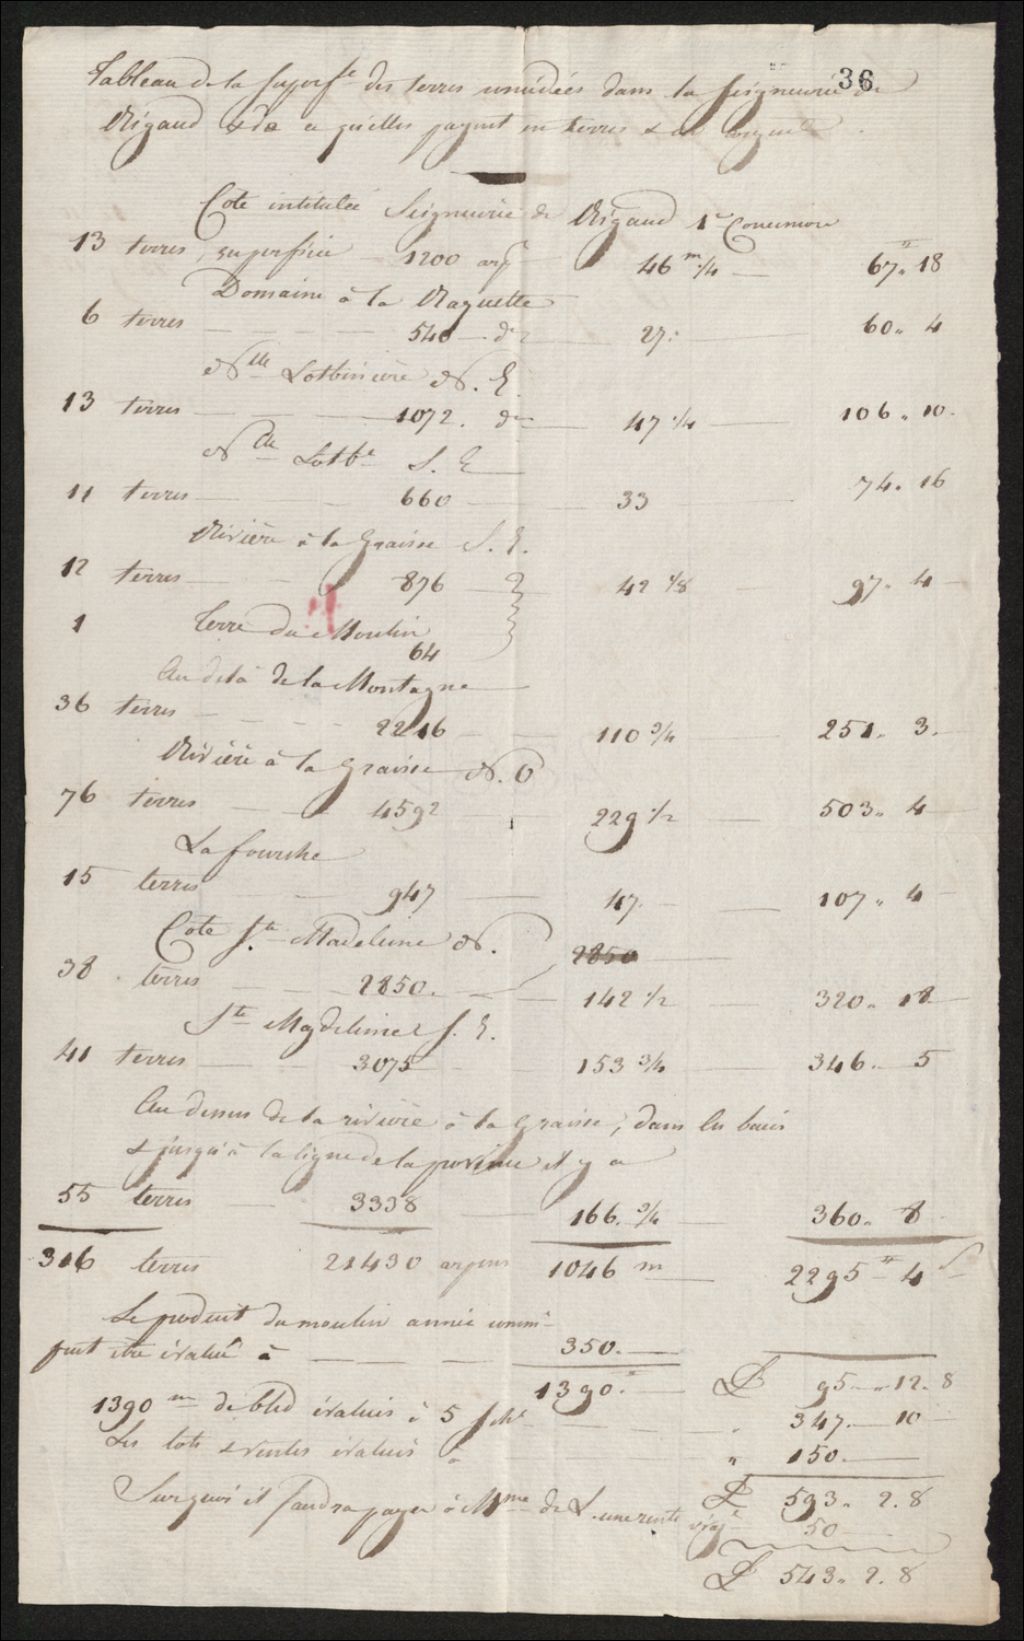 36
Tableau de la superf.e des terres concédées dans la Seigneurie de
Rigaud & de ce qu'elles payent en terres & en argent
Cote intitulée Seigneurie de Rigaud 1e Concession
13 terres, superficie 1200 arp 46 m 1/4 — 67 " 18
Domaine à la Raquette
6 terres — 540 — do 27 : 60 " 4
Nlle Lotbinière N. E.
13 terres — 1072. do — 47 1/4 — 106 " 10
Nlle Lotbe S. E
11 terres — 660 — 33 74 " 16
Rivière à la Graisse S. E.
12 terres — 876 — 42 1/8 97 " 4
1 Terre du Moulin
64
Au delà de la Montagne
36 terres — 2216 — 110 3/4 — 251 " 3.
Rivière à la Graisse N. O
76 terres — 4592 229 1/2 — 503 " 4
La fourche
15 terres — 947 — 47. — 107 " 4
Cote Ste Madeleine N. 2850
38 terres — 2850. — 142 1/2 — 320 " 18
Ste Magdeleine S. E.
41 terres — 3075 153 3/4 — 346 " 5
Au dessus de la rivière à la Graisse, dans les baies
& jusqu'à la ligne de la province il y a
55 terres — 3338 — 166. 3/4 — 360 " 8
316 terres 21430 arpens 1046 m — 2295 " 4 s
Le produit du moulin année comm.
peut être évalué à — 350. —
1390. — £ 95 " 12. 8
1390 m de bled évalués à 5 sch. " 347. — 10
Les lots & ventes évalués à " 150. —
£ 593 " 2. 8
Sur quoi il faudra payer à Mme de L. une rente viag. 50 —
£ 543 " 2. 8